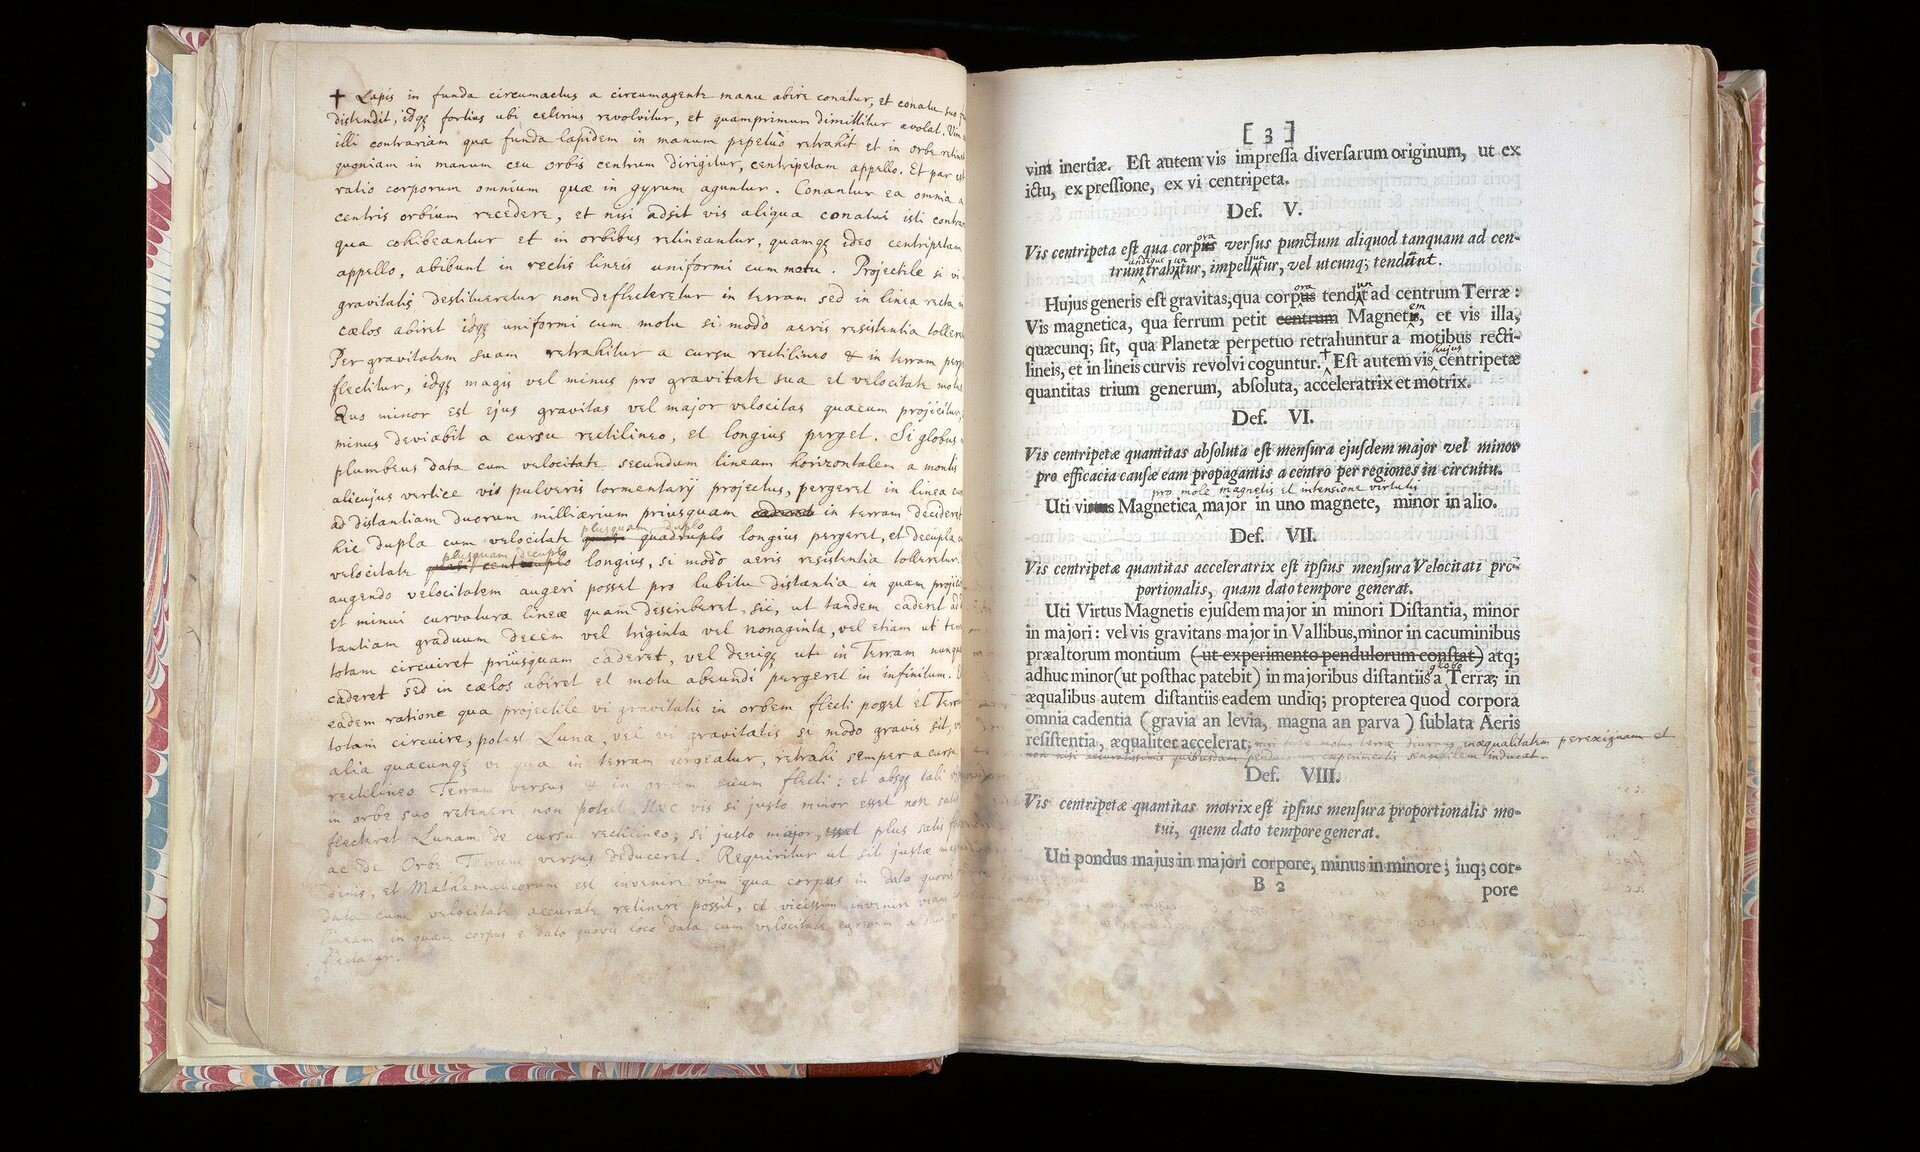 ✝ Lapis in funda circumactus a circumagente manu abire conatur, et conatu suo
distendit, idq; fortius ubi celerius revolvitur, et quamprimum dimittitur avolat. Vim
illi contrariam qua funda lapidem in manum perpetuò retrahit et in orbe
quoniam in manum ceu orbis centrum dirigitur, centripetam appello. Et par est
ratio corporum omnium quæ in gyrum aguntur. Conantur ea omnia a
centris orbium recedere, et nisi adsit vis aliqua conatui isti
qua cohibeantur et in orbibus retineantur, quamq; ideo centripetam
appello, abibunt in rectis lineis uniformi cum motu. Projectile si vi
gravitatis destitueretur non deflecteretur in terram sed in linea recta in
cælos abiret idq; uniformi cum motu si modò aeris resistentia
Per gravitatem suam retrahitur a cursu rectilineo & in terram
flectitur, idq; magis vel minus pro gravitate sua et velocitate
Quo minor est ejus gravitas vel major velocitas quacum projicitur,
minus deviabit a cursu rectilineo, et longius perget. Si globus
plumbeus data cum velocitate secundum lineam horizontalem a montis
alicujus vertice vi pulveris tormentarij projectus, pergeret in linea
ad distantiam duorum milliarium priusquam in terram decideret
plusquam duplo
hic dupla cum velocitate quasi quadruplo longius pergeret, et decupla
plusquam decuplo
velocitate quasi centuplo longius, si modò aeris resistentia tolleretur.
augendo velocitatem augeri posset pro lubitu distantia in quam
et minui curvatura lineæ quam describeret, sic, ut tandem caderet ad
tantiam graduum decem vel triginta vel nonaginta, vel etiam ut
totam circuiret priusquam caderet, vel deniq; ut in Terram
caderet sed in cælos abiret et motu abeundi pergeret in infinitum.
eadem ratione qua projectile vi gravitatis in orbem flecti posset et Terram
totam circuire, potest Luna, vel vi gravitatis si modo gravis sit,
alia quacunq; vi qua in terram urgeatur, retrahi semper a cursu
rectilineo Terram versus & in orbem suum flecti: et absq; tali
in orbe suo retineri non potest. Hæc vis si justo minor esset non satis
flecteret Lunam de cursu rectilineo; si justo major, esset plus satis
ac de Orbe Terram versus deduceret. Requiritur ut sit justæ
dinis, et Mathematicorum est invenire vim qua corpus in dato quovis
data cum velocitate accurate retineri possit, et vicissim invenire viam
lineam in quam corpus e dato quovis loco data cum velocitate egressum a data
flectatur.
[ 3 ]
vim inertiæ. Eſt autem vis impreſſa diverſarum originum, ut ex
ictu, ex preſſione, ex vi centripeta.
Def. V.
ora
Vis centripeta eſt qua corpus verſus punctum aliquod tanquam ad cen-
undique un un
trum trahitur, impellitur, vel utcunq; tendunt.
ora un
Hujus generis eſt gravitas, qua corpus tendit ad centrum Terræ:
em
Vis magnetica, qua ferrum petit centrum Magnetis, et vis illa,
quæcunq; ſit, qua Planetæ perpetuo retrahuntur a motibus recti-
hujus
lineis, et in lineis curvis revolvi coguntur. ✝ Eſt autem vis centripetæ
quantitas trium generum, abſoluta, acceleratrix et motrix.
Def. VI.
Vis centripetæ quantitas abſoluta eſt menſura ejuſdem major vel minor
pro efficacia cauſæ eam propagantis a centro per regiones in circuitu.
pro mole magnetis et intensione virtutis
Uti virtus Magnetica major in uno magnete, minor in alio.
Def. VII.
Vis centripetæ quantitas acceleratrix eſt ipſius menſura Velocitati pro-
portionalis, quam dato tempore generat.
Uti Virtus Magnetis ejuſdem major in minori Diſtantia, minor
in majori: vel vis gravitans major in Vallibus, minor in cacuminibus
præaltorum montium (ut experimento pendulorum conſtat) atq;
globo
adhuc minor (ut poſthac patebit) in majoribus diſtantiis a Terra; in
æqualibus autem diſtantiis eadem undiq; propterea quod corpora
omnia cadentia (gravia an levia, magna an parva) ſublata Aeris
reſiſtentia, æqualiter accelerat; nisi forte motus terræ diurnus inæqualitatem perexiguam et
non nisi accuratissimis quibusdam pendulorum experimentis sensibilem inducat.
Def. VIII.
Vis centripetæ quantitas motrix eſt ipſius menſura proportionalis mo-
tui, quem dato tempore generat.
Uti pondus majus in majori corpore, minus in minore; inq; cor-
B 2 pore